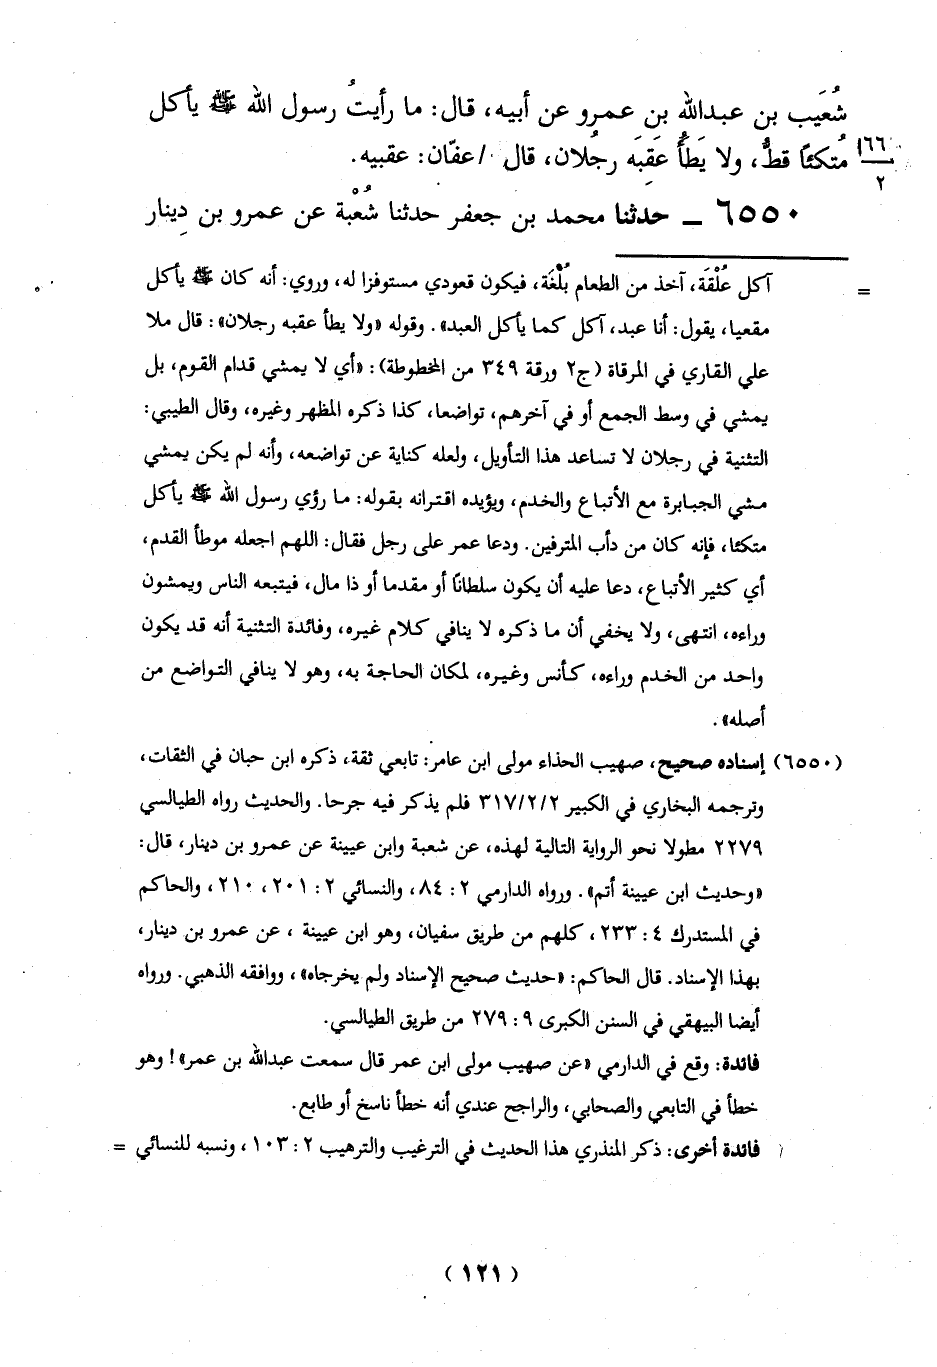 شُعَيب بن عبدالله بن عمرو عن أبيه، قال: ما رأيتُ رسول الله ﷺ يأكل
مُتكئًا قطُّ، ولا يَطَأُ عَقِبَه رجُلان، قال /عفّان: عقبيه.
١٦٦
٢
٦٥٥٠ ــ حدثنا محمد بن جعفر حدثنا شُعْبة عن عمرو بن دِينار
= آكل عُلْقَة، آخذ من الطعام بُلْغَة، فيكون قعودي مستوفزا له، وروي: أنه كان ﷺ يأكل
مقعيا، يقول: أنا عبد، آكل كما يأكل العبد». وقوله «ولا يطأ عقبه رجلان»: قال ملا
علي القاري في المرقاة (ج٢ ورقة ٣٤٩ من المخطوطة): «أي لا يمشي قدام القوم، بل
يمشي في وسط الجمع أو في آخرهم، تواضعا، كذا ذكره المظهر وغيره، وقال الطيبي:
التثنية في رجلان لا تساعد هذا التأويل، ولعله كناية عن تواضعه، وأنه لم يكن يمشي
مشي الجبابرة مع الأتباع والخدم، ويؤيده اقترانه بقوله: ما رؤي رسول الله ﷺ يأكل
متكئا، فإنه كان من دأب المترفين. ودعا عمر على رجل فقال: اللهم اجعله موطأ القدم،
أي كثير الأتباع، دعا عليه أن يكون سلطانًا أو مقدما أو ذا مال، فيتبعه الناس ويمشون
وراءه، انتهى، ولا يخفي أن ما ذكره لا ينافي كلام غيره، وفائدة التثنية أنه قد يكون
واحد من الخدم وراءه، كأنس وغيره، لمكان الحاجة به، وهو لا ينافي التواضع من
أصله».
(٦٥٥٠) إسناده صحيح، صهيب الحذاء مولى ابن عامر: تابعي ثقة، ذكره ابن حبان في الثقات،
وترجمه البخاري في الكبير ٣١٧/٢/٢ فلم يذكر فيه جرحا. والحديث رواه الطيالسي
٢٢٧٩ مطولا نحو الرواية التالية لهذه، عن شعبة وابن عيينة عن عمرو بن دينار، قال:
«وحديث ابن عيينة أتم». ورواه الدارمي ٢: ٨٤، والنسائي ٢: ٢٠١، ٢١٠، والحاكم
في المستدرك ٤: ٢٣٣، كلهم من طريق سفيان، وهو ابن عيينة ، عن عمرو بن دينار،
بهذا الإسناد. قال الحاكم: «حديث صحيح الإسناد ولم يخرجاه»، ووافقه الذهبي. ورواه
أيضا البيهقي في السنن الكبرى ٩: ٢٧٩ من طريق الطيالسي.
فائدة: وقع في الدارمي «عن صهيب مولى ابن عمر قال سمعت عبدالله بن عمر»! وهو
خطأ في التابعي والصحابي، والراجح عندي أنه خطأ ناسخ أو طابع.
فائدة أخرى: ذكر المنذري هذا الحديث في الترغيب والترهيب ٢: ١٠٣، ونسبه للنسائي =
(١٢١)